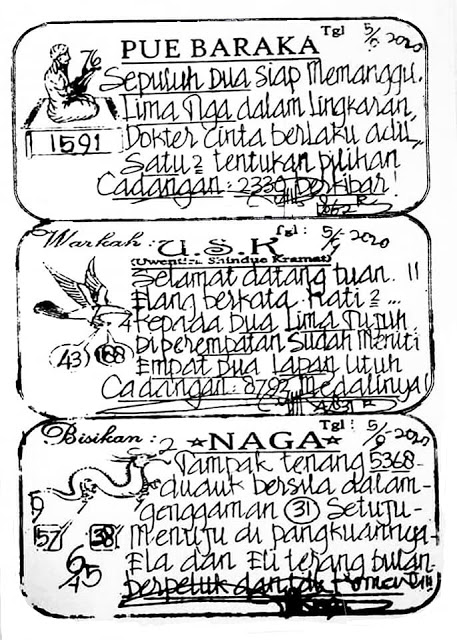 PUE BARAKA Tgl 5/6 2020
76
Sepuluh Dua siap Memanggu.
Lima Tiga dalam lingkaran,
1591
Dokter Cinta berlaku adil,
Satu 2 tentukan pilihan
Cadangan : 2339 Berkibar!
Warkah : U.S.K Tgl : 5/6 2020
(Uwentira Shindue Kramat)
Selamat datang tuan. !!
Elang berkata Hati 2 ...
Kepada Dua Lima Tujuh.
43 188
Diperempatan Sudah Meniti
Empat Dua Lapan Utuh
Cadangan : 8792 Medalinya!
Bisikan : 2 NAGA Tgl : 5/6-2020
Tampak tenang 5368-
duduk bersila dalam-
9
genggaman 31 Setuju-
57 38
Menuju di pangkuannya-
Ela dan Eli terang bulan-
6
45
berpeluk dan